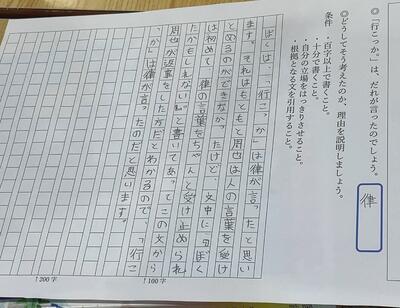 ◎「行こっか。」は、だれが言ったのでしょう。
律
◎どうしてそう考えたのか、理由を説明しましょう。
条件
・百字以上で書くこと。
・十分で書くこと。
・自分の立場をはっきりさせること。
・根拠となる文を引用すること。
ぼくは、「行こっか」は律が言ったと思い
ます。それはもともと周也は人の言葉を受け
とめるのができなかったけど、文中に「ぼく
は初めて、律の言葉をちゃんと受け止められ
たかもしれない。」と書いてあってこの文から
周也が返事をした方だとわかるので、「行こ
っか」は律が言ったのだと思います。
↑100字
↑200字